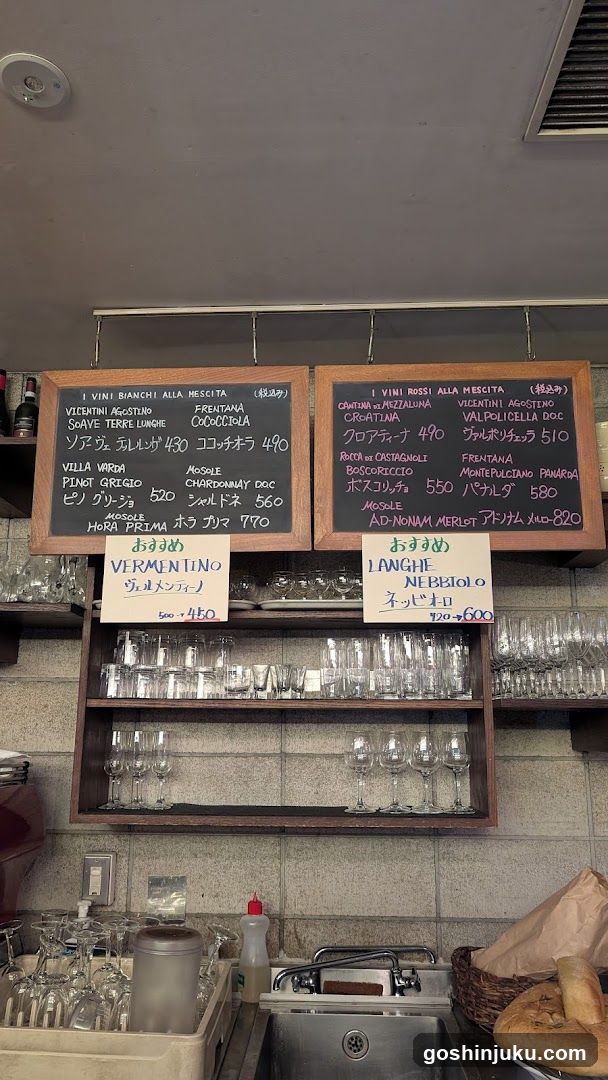 I VINI BIANCHI ALLA MESCITA (税込み)
VICENTINI AGOSTINO
SOAVE TERRE LUNGHE
ソアヴェ テッレルンゲ 430
FRENTANA
COCOCCIOLA
ココッチオラ 490
VILLA VARDA
PINOT GRIGIO
ピノ グリージョ 520
MOSOLE
CHARDONNAY D.O.C
シャルドネ 560
MOSOLE
HORA PRIMA ホラ プリマ 770
I VINI ROSSI ALLA MESCITA (税込み)
CANTINA DI MEZZALUNA
CROATINA
クロアティーナ 490
VICENTINI AGOSTINO
VALPOLICELLA D.O.C
ヴァルポリチェッラ 510
ROCCA DI CASTAGNOLI
BOSCORICCIO
ボスコリッチョ 550
FRENTANA
MONTEPULCIANO PANARDA
パナルダ 580
MOSOLE
AD-NONAM MERLOT アドノナム メルロー 820
おすすめ
VERMENTINO
ヴェルメンティーノ
500→450
おすすめ
LANGHE
NEBBIOLO
ネッビオーロ
720→600
goshinjuku.com